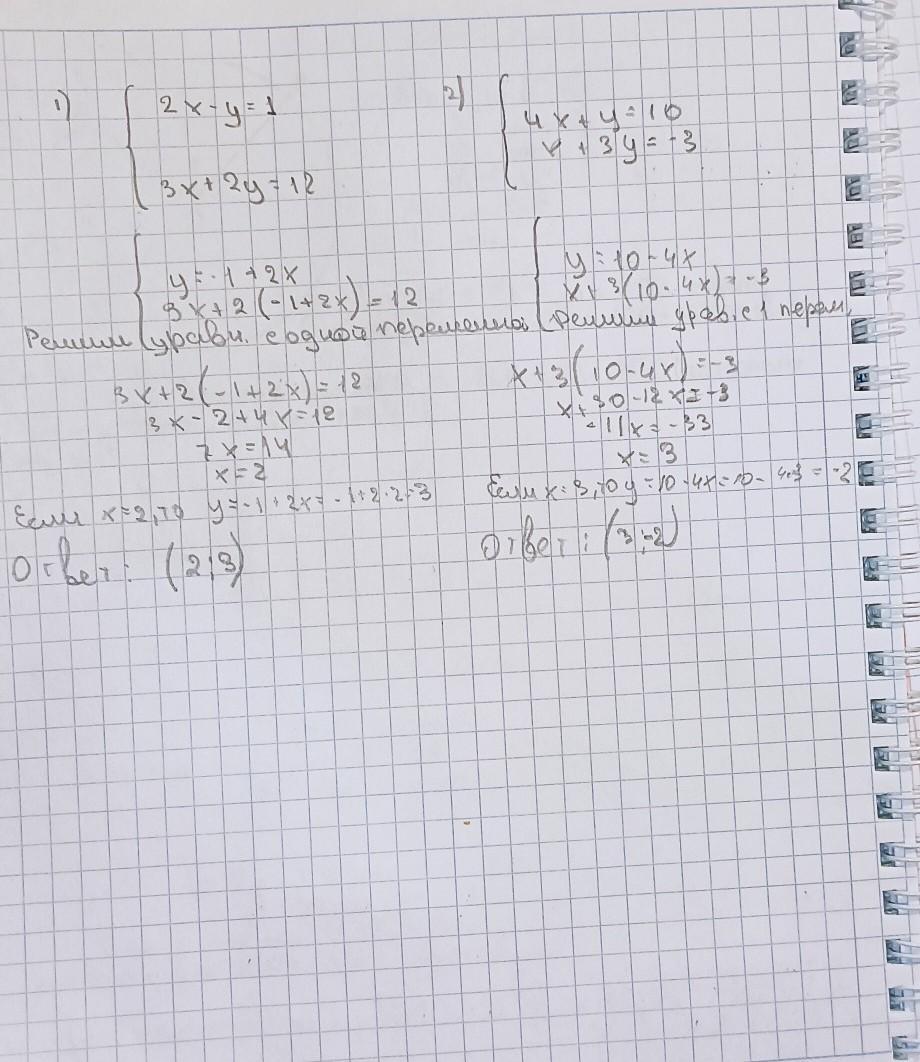 1)
2x - y = 1
3x + 2y = 12
y = -1 + 2x
3x + 2(-1 + 2x) = 12
Решим уравн. с одной переменной
3x + 2(-1 + 2x) = 12
3x - 2 + 4x = 12
7x = 14
x = 2
Если x = 2, то y = -1 + 2x = -1 + 2·2 = 3
Ответ: (2;3)
2)
4x + y = 10
x + 3y = -3
y = 10 - 4x
x + 3(10 - 4x) = -3
Решим урав. с 1 перем.
x + 3(10 - 4x) = -3
x + 30 - 12x = -3
-11x = -33
x = 3
Если x = 3, то y = 10 - 4x = 10 - 4·3 = -2
Ответ: (3;-2)